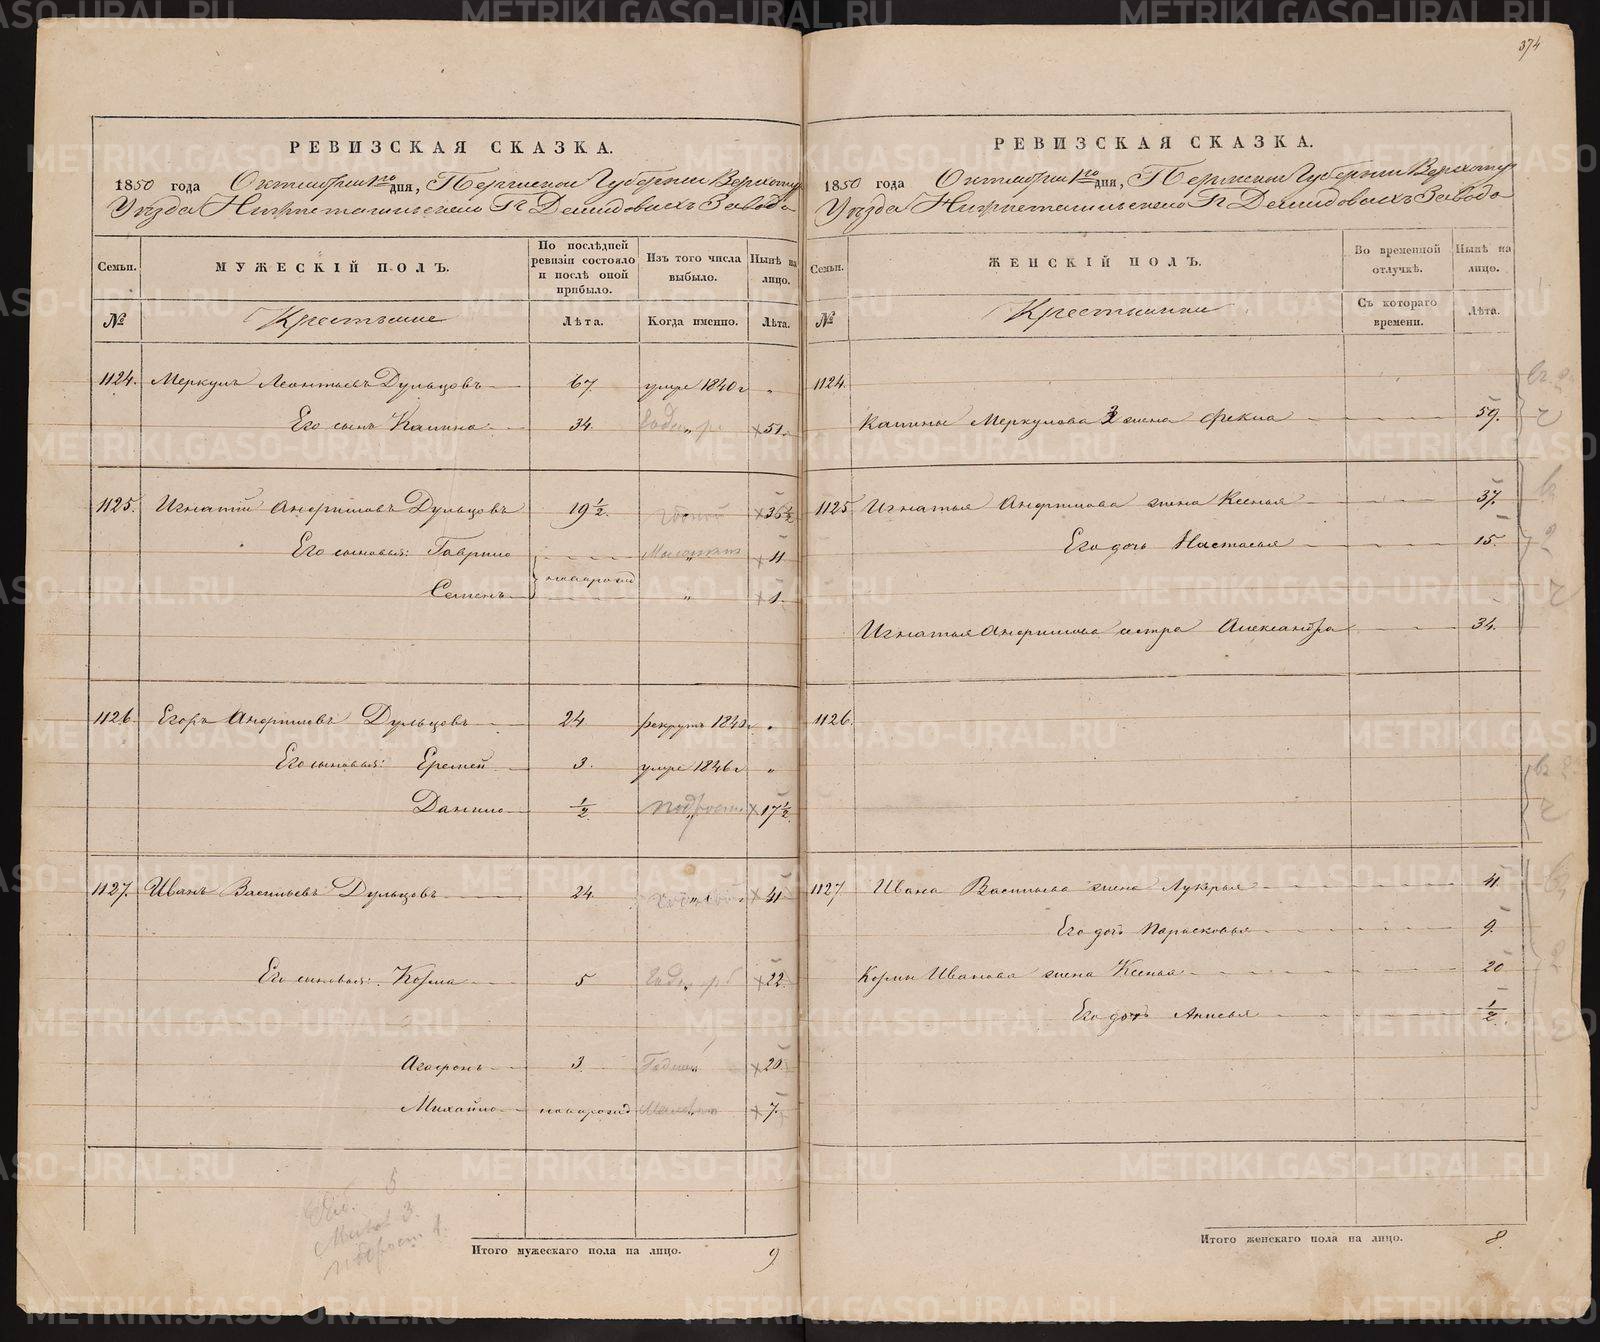 374
РЕВИЗСКАЯ СКАЗКА.
1850 года Октября 1го дня, Пермской Губернии Верхотур
Уѣзда Нижнетагильскаго Гг Демидовыхъ Завода
Семьи. МУЖЕСКІЙ ПОЛЪ. По послѣдней ревизіи состояло и послѣ оной прибыло. Изъ того числа выбыло. Нынѣ на лицо.
№ Крестьяне Лѣта. Когда именно. Лѣта.
1124. Меркулъ Леонтьевъ Дульцовъ 67. умре 1840 г "
Его сынъ Калина 34. Годн. " 51.
1125. Игнатій Андреяновъ Дульцовъ 19 1/2. Годной 36 1/2
Его сыновья: Гаврило Малолет. " 11
новорожд
Семенъ " 1.
1126. Егоръ Андреяновъ Дульцовъ 24 рекрутъ 1840 г "
Его сыновья: Еремей 3. умре 1846 г "
Данило 1/2 подрост. " 17 1/2
1127. Иванъ Васильевъ Дульцовъ 24. " 41
Его сыновья: Козма 5 Годн. " 22.
Агафонъ 3. Годный " 20
Михайло новорожд " 7.
5
Малол 3.
подрост. 1.
Итого мужескаго пола на лицо. 9
РЕВИЗСКАЯ СКАЗКА.
1850 года Октября 1го дня, Пермской Губернии Верхотур
Уѣзда Нижнетагильскаго Гг Демидовыхъ Завода
Семьи. ЖЕНСКІЙ ПОЛЪ. Во временной отлучкѣ. Нынѣ на лицо.
№ Крестьянки Съ котораго времени. Лѣта.
1124.
Калины Меркулова 3 жена Фекла 59.
1125 Игнатья Андреянова жена Ксенья 37.
Его дочь Настасья 15.
Игнатья Андреянова сестра Александра 34.
1126.
1127 Ивана Васильева жена Лукерья 41.
Его дочь Парасковья 9.
Козмы Иванова жена Ксенья 20
Его дочь Анисья 1/2
Итого женскаго пола на лицо. 8.
METRIKI.GASO-URAL.RU